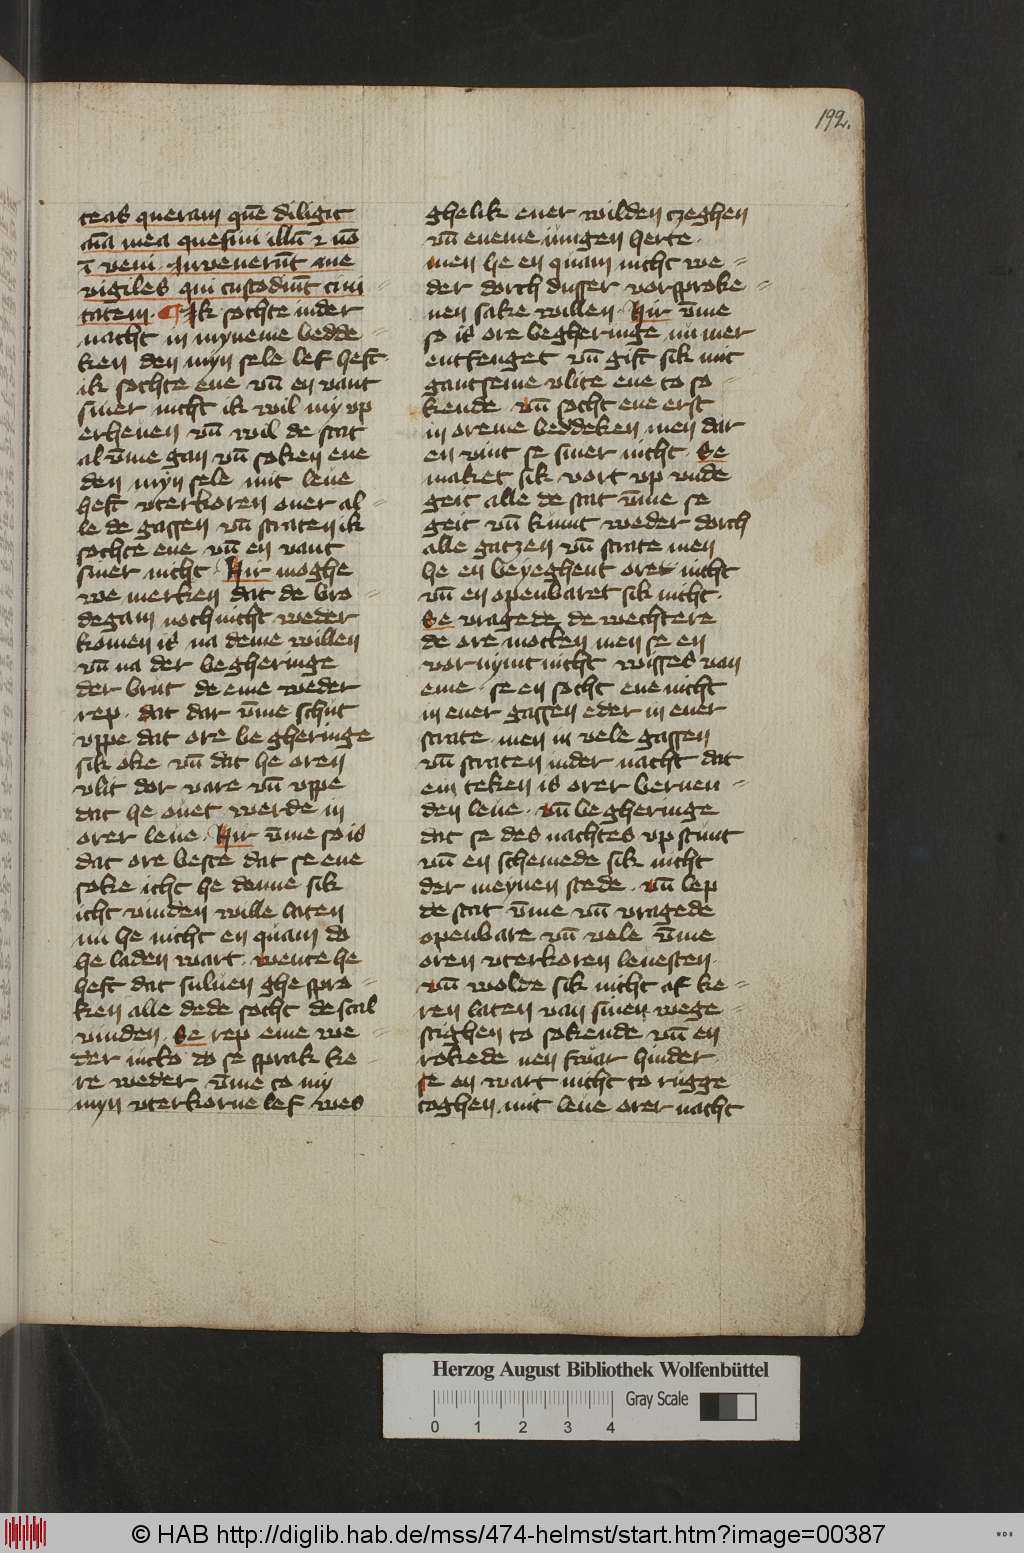 192.
teas queram quē diligit
aīa mea quesiui illū ⁊ nō
ī veni · Jnvenerūt me
vigiles qui custodiūt ciui-
tatem · ¶ Jk sochte inder
nacht in myneme bedde-
ken den myn sele lef heft
ik sochte ene vn̄ en vant
siner nicht ik wil my vp
erheuen vn̄ wil de stat
al vm̄e gan vn̄ soken ene
den myn sele mit leue
heft vterkoren ouer al-
le de gassen vn̄ straten ik
sochte ene vn̄ en vant
siner nicht · Hir moghe
we merken dat de bro-
degam noch nicht weder
komen is na deme willen
vn̄ na der begheringe
der brut de eme weder
rep · dat dar vm̄e schut
vppe dat ore be gheringe
sik oke vn̄ dat he oren
vlit dor vare vn̄ vppe
dat he ouet werde in
orer leue · Hir vm̄e so is
dat ore beste dat se ene
soke icht he denne sik
icht vinden wille laten
nu he nicht en quam do
he laden wart · wente he
heft dat suluen ghe spro-
ken alle dede socht de scal
vinden · Se rep eme we-
der incko do se sprak ke-
re weder vm̄e to my
myn vterkorne lef wes
ghelik ener wilden czeghen
vn̄ eneme iungen herte ·
men he en quam nicht we-
der dorch dusser vorsproke-
nen sake willen · Hir vm̄e
so is ore begheringe nu mer
entfenget vn̄ gift sik mit
gantseme vlite ene to so-
kende vn̄ socht ene erst
in oreme beddeken men dar
en vint se siner nicht · Se
maket sik vort vp vnde
geit alle de stat vm̄e se
geit vn̄ kumt weder dorch
alle gatzen vn̄ strate men
he en beyeghent ore nicht
vn̄ en openbaret sik nicht ·
Se vragede de wechtere
de ore motten men se en
vornymt nicht wisses van
eme · se en socht ene nicht
in ener gassen eder in ener
strate men in vele gassen
vn̄ straten inder nacht dat
ein teken is orer bernen-
den leue · vn̄ begheringe
dat se des nachtes vp stunt
vn̄ en schemede sik nicht
der meynen stede · vn̄ lep
de stat vm̄e vn̄ vragede
openbare vn̄ vele vm̄e
oren vterkoren leuesten ·
vn̄ wolde sik nicht af ke-
ren laten van sinen wege-
stighen to sokende vn̄ en
rokede nen swar hinder ·
se en wart nicht to rugge
toghen mit leue orer nacht
Herzog August Bibliothek Wolfenbüttel
Gray Scale
0 1 2 3 4
© HAB http://diglib.hab.de/mss/474-helmst/start.htm?image=00387